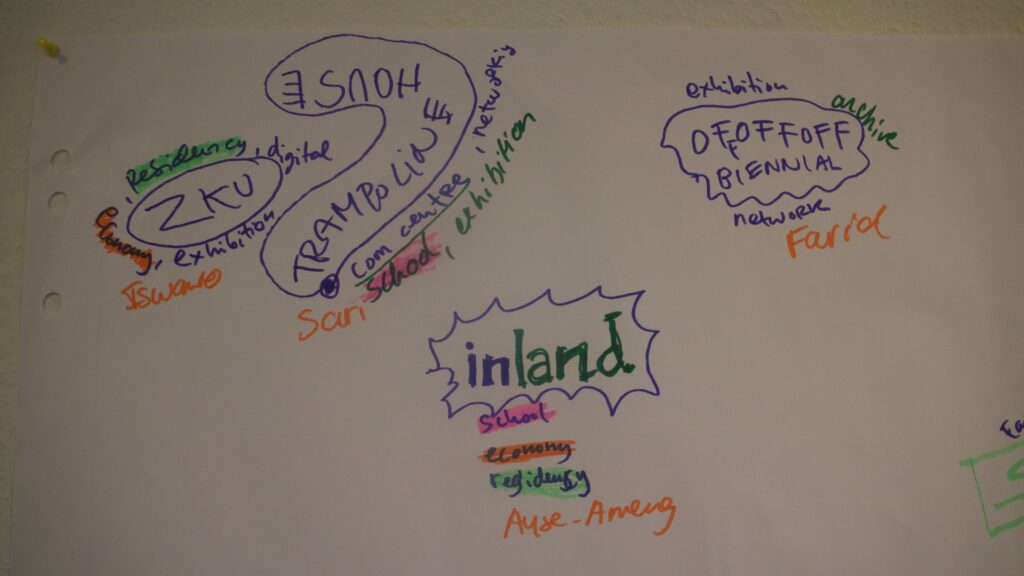 TRAMPOLINE HOUSE
com centre, network
school, exhibition
Sari
residency, digital
ZKU
economy, exhibition
Iswanto
exhibition
archive
OFF OFF OFF
BIENNIAL
network
Farid
inland
school
economy
residency
Ayse - Ameng